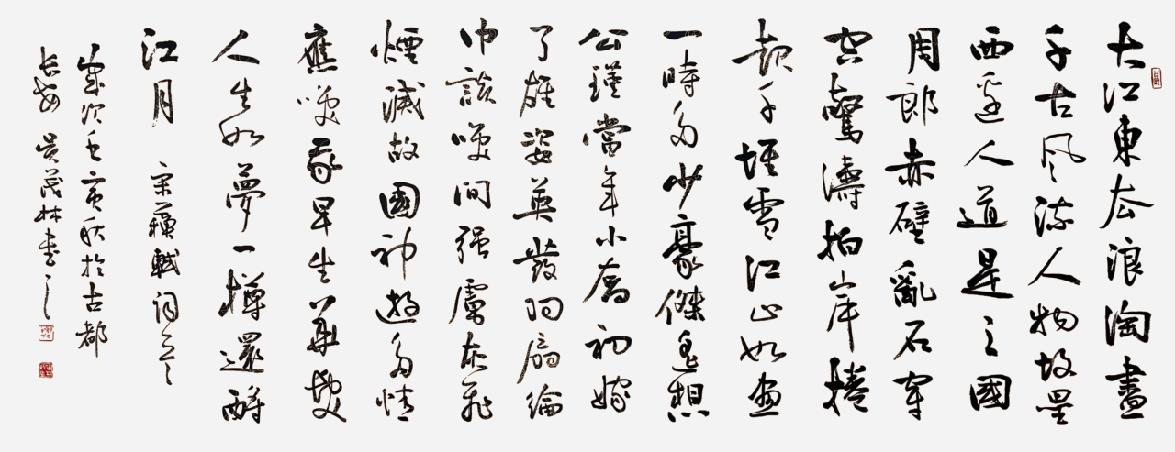 大江東去浪淘盡
千古風流人物故壘
西邊人道是三國
周郎赤壁亂石穿
空驚濤拍岸捲
起千堆雪江山如畫
一時多少豪傑遙想
公瑾當年小喬初嫁
了雄姿英發羽扇綸
巾談笑間强虜灰飛
煙滅故國神遊多情
應笑我早生華髮
人生如夢一樽還酹
江月 宋蘇軾詞
歲次亥秋於古都
長安 吴茂林書之